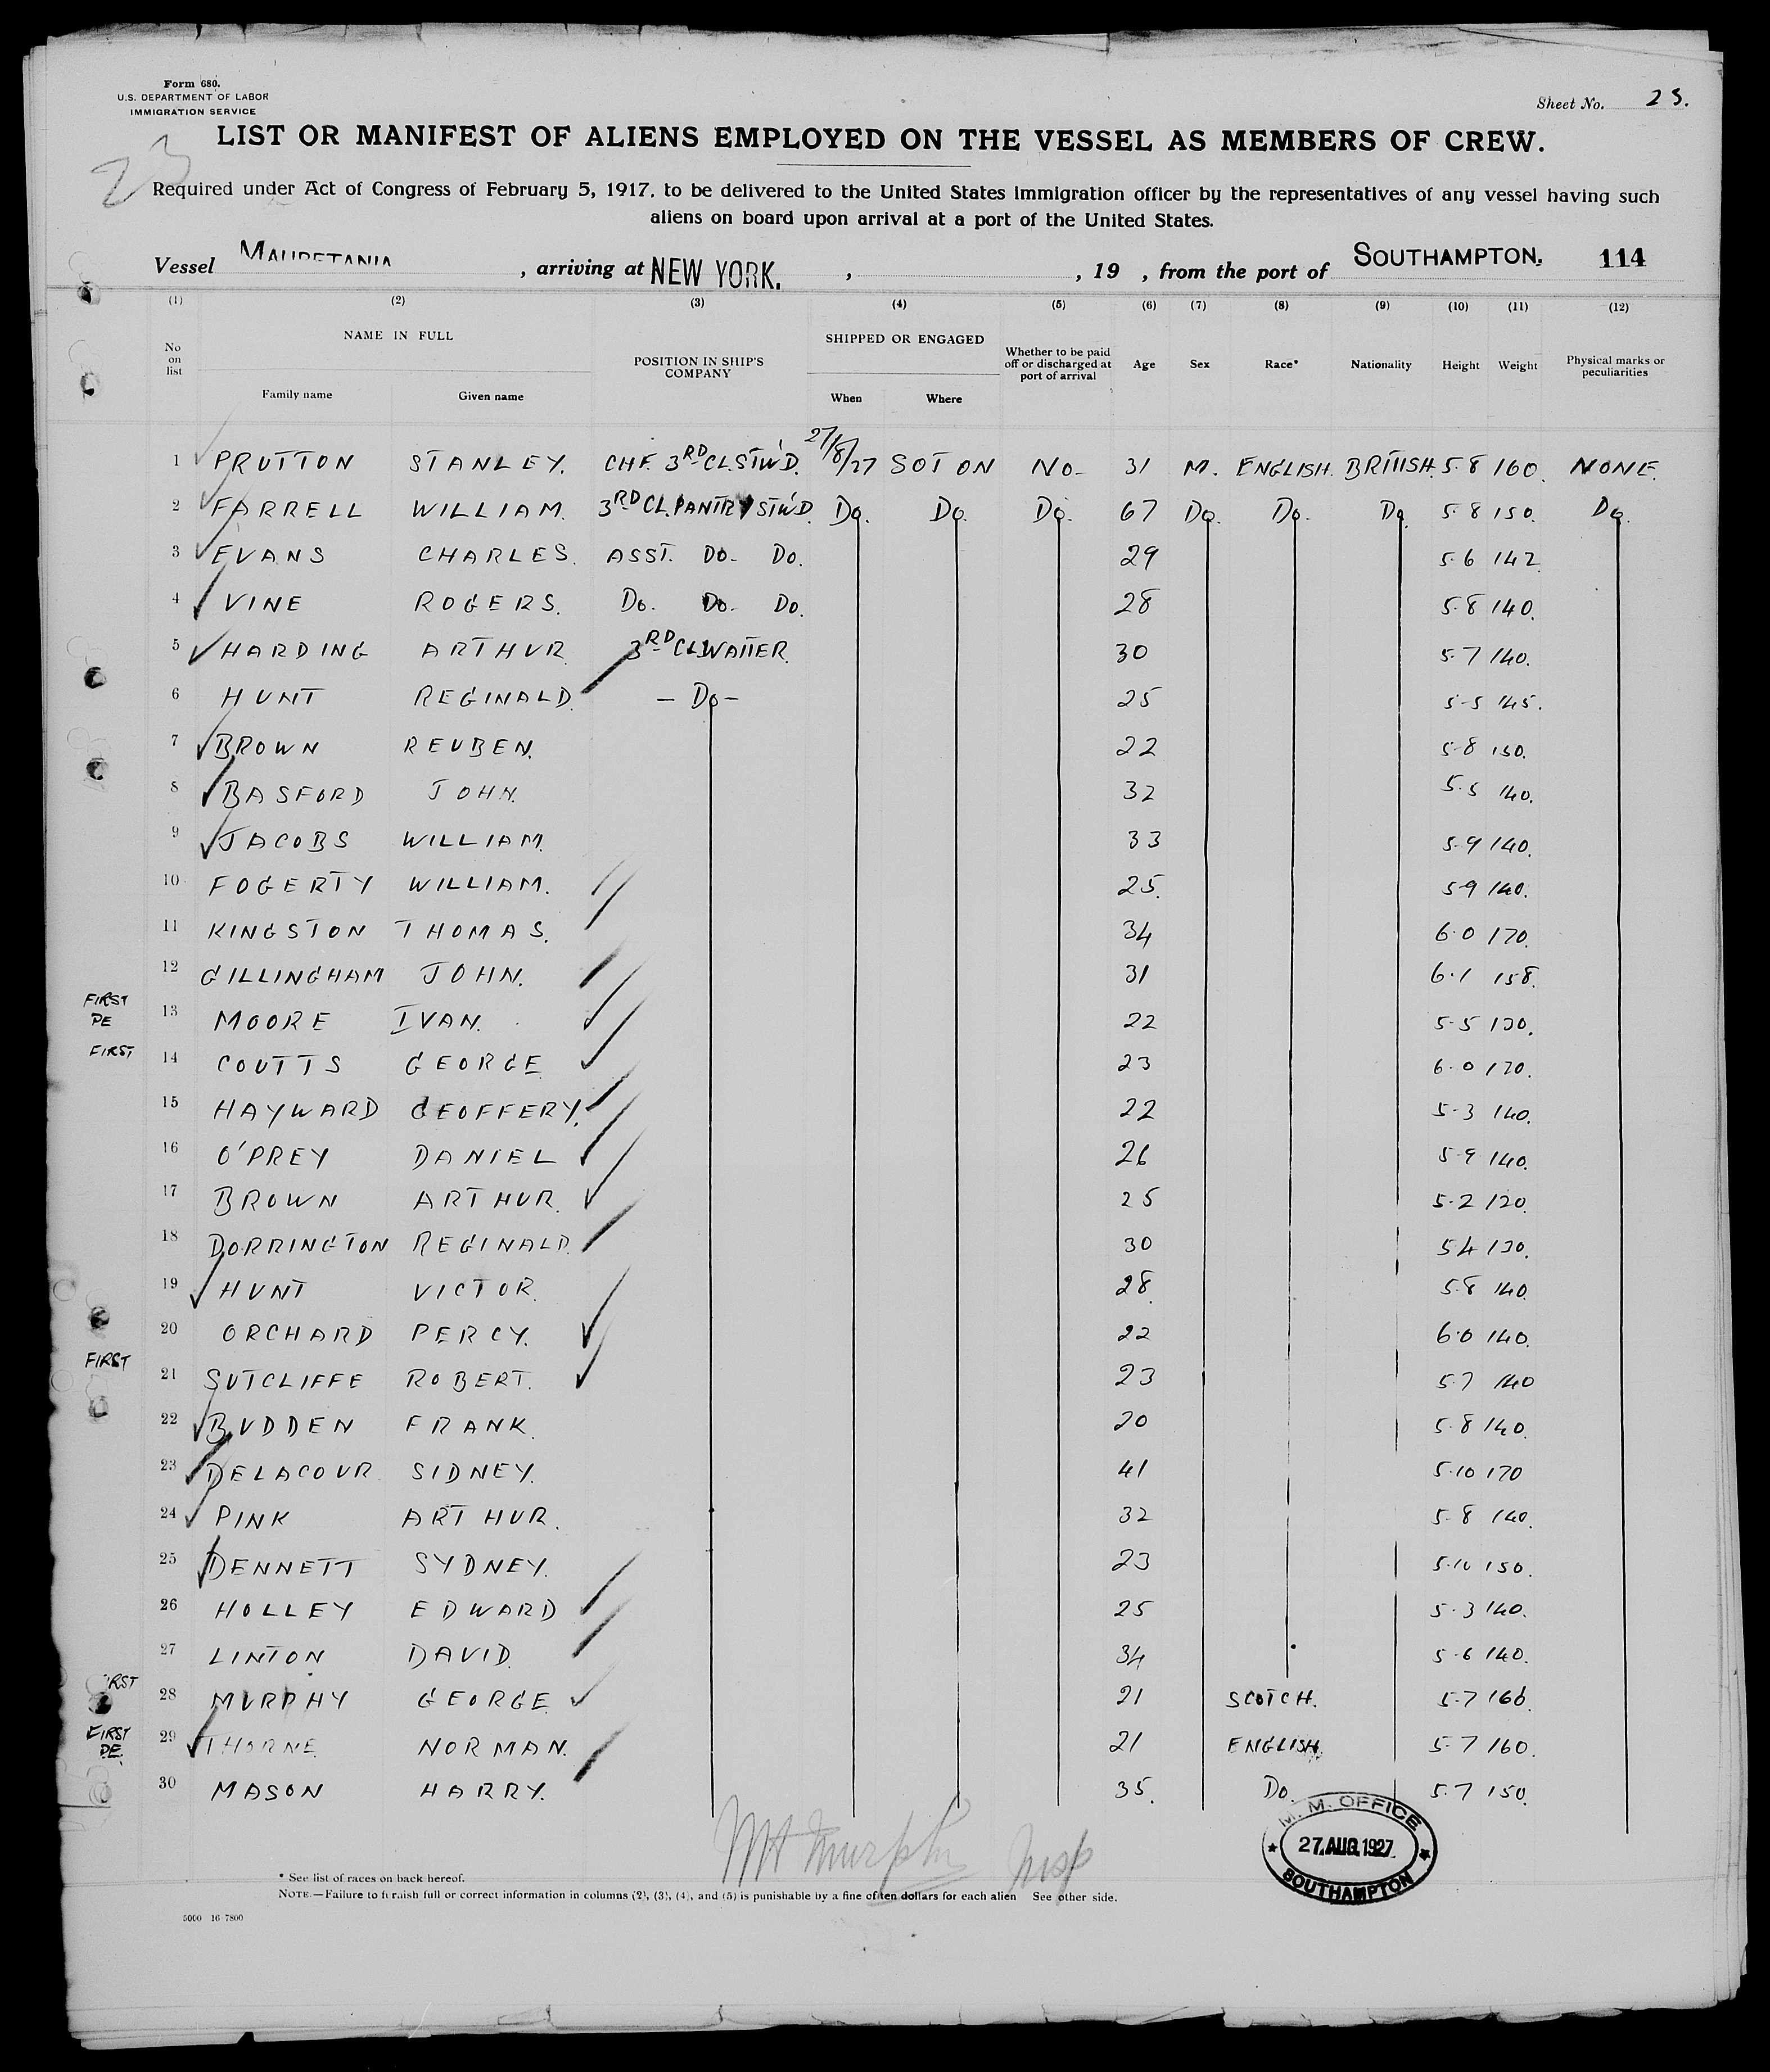 Form 680.
U.S. DEPARTMENT OF LABOR
IMMIGRATION SERVICE
Sheet No. 23.
23
LIST OR MANIFEST OF ALIENS EMPLOYED ON THE VESSEL AS MEMBERS OF CREW.
Required under Act of Congress of February 5, 1917, to be delivered to the United States immigration officer by the representatives of any vessel having such
aliens on board upon arrival at a port of the United States.
Vessel MAURETANIA , arriving at NEW YORK. , , 19 , from the port of SOUTHAMPTON. 114
(1) (2) (3) (4) (5) (6) (7) (8) (9) (10) (11) (12)
No on list NAME IN FULL Family name Given name POSITION IN SHIP'S COMPANY SHIPPED OR ENGAGED When Where Whether to be paid off or discharged at port of arrival Age Sex Race* Nationality Height Weight Physical marks or peculiarities
1 PRUTTON STANLEY. CHF. 3RD CL STW'D. 27/8/27 SOTON NO- 31 M. ENGLISH. BRITISH. 5.8 160. NONE.
2 FARRELL WILLIAM. 3RD CL. PANTRY STW'D. Do. Do. Do. 67 Do. Do. Do. 5.8 150. Do.
3 EVANS CHARLES. ASST. DO- DO. 29 5.6 142
4 VINE ROGERS. Do. Do. Do. 28 5.8 140.
5 HARDING ARTHUR 3RD CL WAITER. 30 5.7 140.
6 HUNT REGINALD. - Do - 25 5-5 145.
7 BROWN REUBEN. 22 5-8 150.
8 BASFORD JOHN. 32 5.5 140.
9 JACOBS WILLIAM. 33 5.9 140.
10 FOGERTY WILLIAM. 25. 5.9 140.
11 KINGSTON THOMAS. 34 6.0 170.
12 GILLINGHAM JOHN. 31 6.1 158.
FIRST
DE
13 MOORE IVAN. 22 5.5 130.
FIRST
14 COUTTS GEORGE 23 6.0 170.
15 HAYWARD GEOFFERY. 22 5-3 140.
16 O'PREY DANIEL 26 5.9 140.
17 BROWN ARTHUR. 25 5.2 120.
18 DORRINGTON REGINALD. 30 5.4 130.
19 HUNT VICTOR. 28. 5.8 140.
20 ORCHARD PERCY. 22 6.0 140.
FIRST
21 SUTCLIFFE ROBERT. 23 5.7 140
22 BUDDEN FRANK. 20 5.8 140.
23 DELACOUR SIDNEY. 41 5.10 170
24 PINK ARTHUR. 32 5.8 140.
25 DENNETT SYDNEY. 23 5.10 150.
26 HOLLEY EDWARD 25 5.3 140.
27 LINTON DAVID. 34 5.6 140.
28 MURPHY GEORGE 21 SCOTCH. 5.7 160.
FIRST
DE.
29 THORNE NORMAN. 21 ENGLISH. 5.7 160.
30 MASON HARRY. 35. Do. 5.7 150.
M. M. OFFICE
27. AUG. 1927
SOUTHAMPTON
Murphy Insp
* See list of races on back hereof.
NOTE.—Failure to furnish full or correct information in columns (2), (3), (4), and (5) is punishable by a fine of ten dollars for each alien See other side.
5000 16-7800